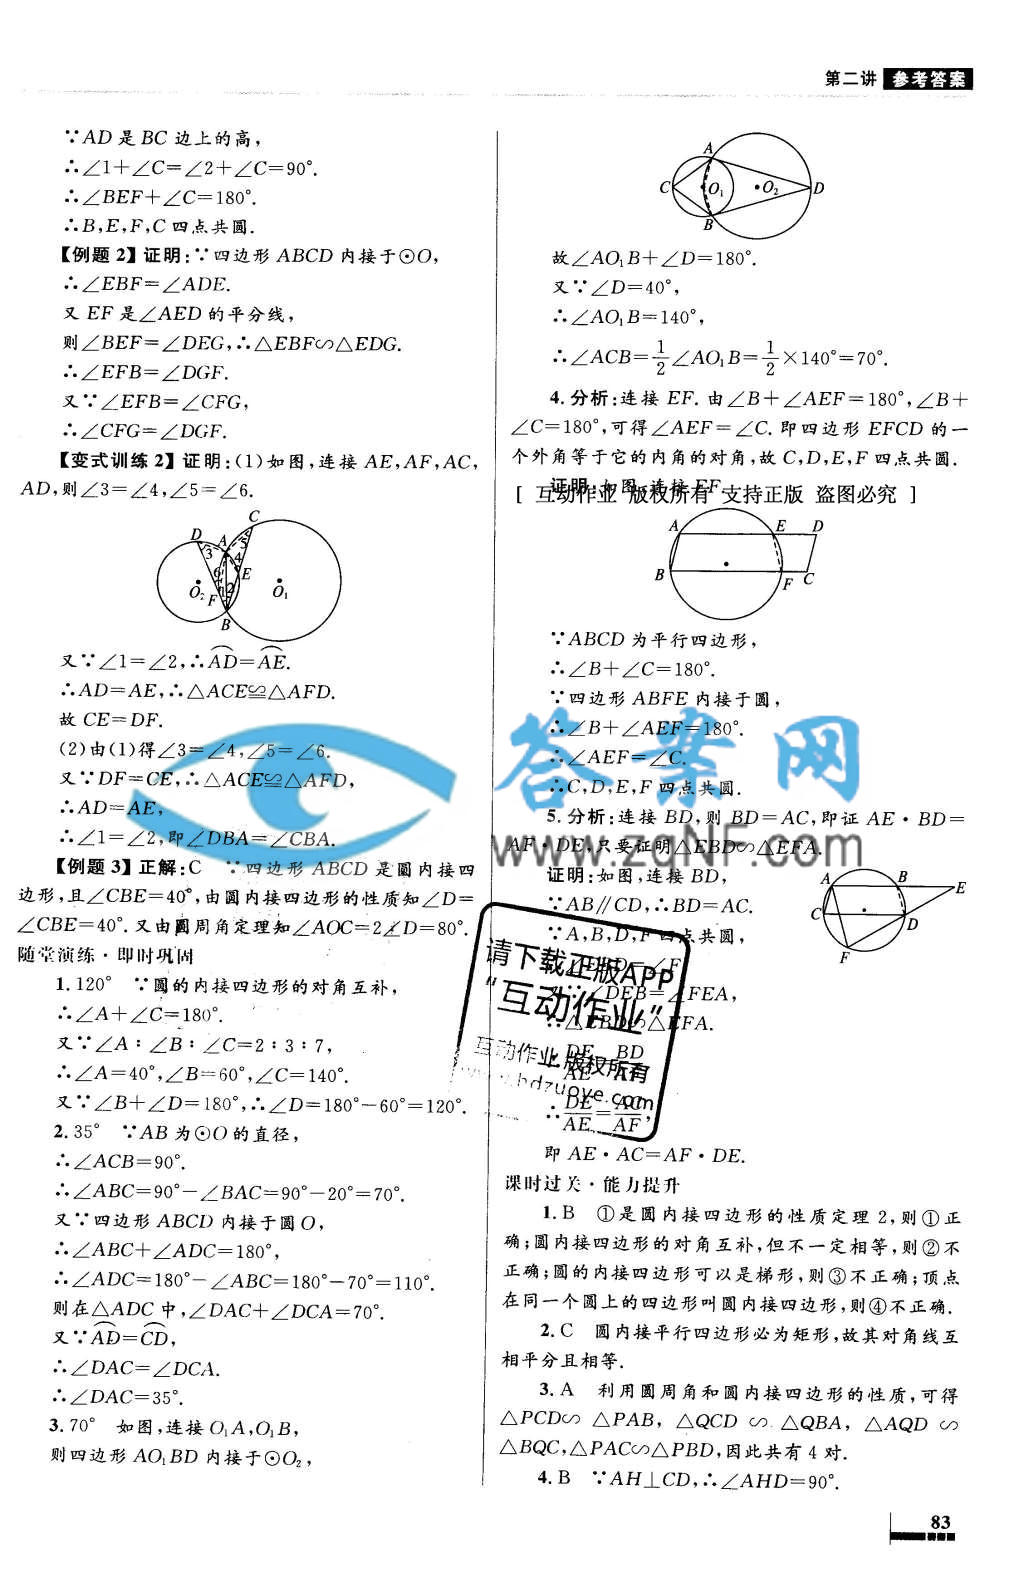 第二讲 参考答案
∵AD是BC边上的高，
∴∠1+∠C=∠2+∠C=90°.
∴∠BEF+∠C=180°.
∴B,E,F,C四点共圆.
【例题2】证明:∵四边形ABCD内接于⊙O，
∴∠EBF=∠ADE.
又EF是∠AED的平分线，
则∠BEF=∠DEG,∴△EBF∽△EDG.
∴∠EFB=∠DGF.
又∵∠EFB=∠CFG，
∴∠CFG=∠DGF.
【变式训练2】证明:(1)如图,连接AE,AF,AC,
AD,则∠3=∠4,∠5=∠6.
D A C 3 5 4 6 E 1 2 F B O₂ O₁
又∵∠1=∠2,∴AD⌒=AE⌒.
∴AD=AE,∴△ACE≌△AFD.
故CE=DF.
(2)由(1)得∠3=∠4,∠5=∠6.
又∵DF=CE,∴△ACE≌△AFD,
∴AD=AE,
∴∠1=∠2,即∠DBA=∠CBA.
【例题3】正解:C ∵四边形ABCD是圆内接四
边形,且∠CBE=40°,由圆内接四边形的性质知∠D=
∠CBE=40°.又由圆周角定理知∠AOC=2∠D=80°.
随堂演练·即时巩固
1.120° ∵圆的内接四边形的对角互补,
∴∠A+∠C=180°.
又∵∠A∶∠B∶∠C=2∶3∶7,
∴∠A=40°,∠B=60°,∠C=140°.
又∵∠B+∠D=180°,∴∠D=180°-60°=120°.
2.35° ∵AB为⊙O的直径,
∴∠ACB=90°.
∴∠ABC=90°-∠BAC=90°-20°=70°.
又∵四边形ABCD内接于圆O,
∴∠ABC+∠ADC=180°,
∴∠ADC=180°-∠ABC=180°-70°=110°.
则在△ADC中,∠DAC+∠DCA=70°.
又∵AD⌒=CD⌒,
∴∠DAC=∠DCA.
∴∠DAC=35°.
3.70° 如图,连接O₁A,O₁B,
则四边形AO₁BD内接于⊙O₂,
A C O₁ O₂ D B
故∠AO₁B+∠D=180°.
又∵∠D=40°,
∴∠AO₁B=140°,
∴∠ACB=1/2∠AO₁B=1/2×140°=70°.
4.分析:连接EF.由∠B+∠AEF=180°,∠B+
∠C=180°,可得∠AEF=∠C.即四边形EFCD的一
个外角等于它的内角的对角,故C,D,E,F四点共圆.
证明:如图,连接EF.
[ 互动作业 版权所有 支持正版 盗图必究 ]
A E D B F C
∵ABCD为平行四边形,
∴∠B+∠C=180°.
∵四边形ABFE内接于圆,
∴∠B+∠AEF=180°.
∴∠AEF=∠C.
∴C,D,E,F四点共圆.
5.分析:连接BD,则BD=AC,即证AE·BD=
AF·DE,只要证明△EBD∽△EFA.
证明:如图,连接BD,
∵AB∥CD,∴BD=AC.
∵A,B,D,F四点共圆,
又∵∠DEB=∠FEA,
∴△EBD∽△EFA.
∴DE/AE=BD/AF.
∴DE/AE=AC/AF,
即AE·AC=AF·DE.
A B E C D F
答案网
www.zqNF.com
请下载正版APP
“互动作业”
互动作业 版权所有
www.hdzuoye.com
课时过关·能力提升
1.B ①是圆内接四边形的性质定理2,则①正
确;圆内接四边形的对角互补,但不一定相等,则②不
正确;圆的内接四边形可以是梯形,则③不正确;顶点
在同一个圆上的四边形叫圆内接四边形,则④不正确.
2.C 圆内接平行四边形必为矩形,故其对角线互
相平分且相等.
3.A 利用圆周角和圆内接四边形的性质,可得
△PCD∽△PAB,△QCD∽△QBA,△AQD∽
△BQC,△PAC∽△PBD,因此共有4对.
4.B ∵AH⊥CD,∴∠AHD=90°.
83